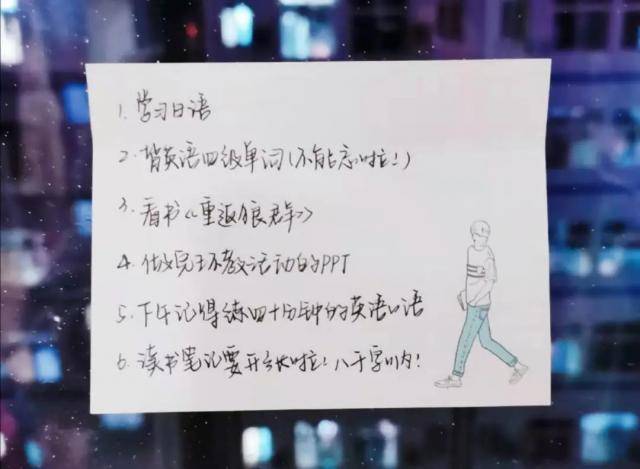 1. 学习日语
2. 背英语四级单词(不能忘啦!)
3. 看书《重返狼群》
4. 做完环教活动的PPT
5. 下午记得练四十分钟的英语口语
6. 读书笔记要开始啦! 八千字以内!